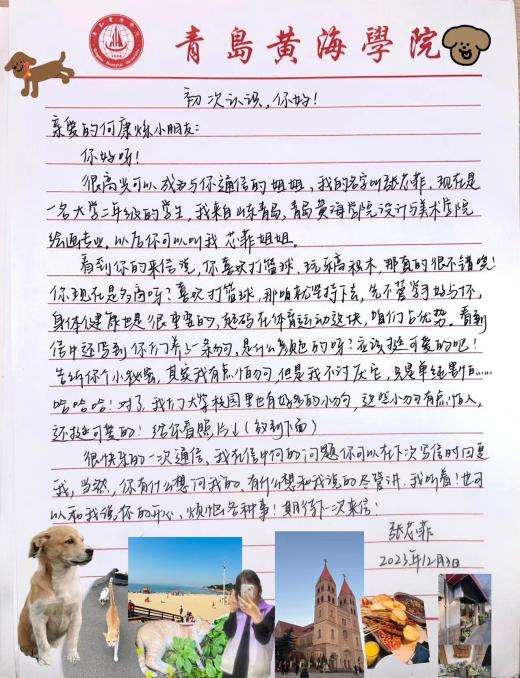 青島黄海學院
初次认识,你好!
亲爱的何康烁小朋友:
你好呀!
很高兴可以成为与你通信的姐姐,我的名字叫张芯菲,现在是
一名大学二年级的学生,我来自山东青岛,青岛黄海学院设计与美术学院
绘画专业。以后你可以叫我芯菲姐姐。
看到你的来信说,你喜欢打篮球、玩乐高积木,那真的很不错噢!
你现在是多高呀?喜欢打篮球,那咱就坚持下去,先不管学习好与坏,
身体健康也是很重要的,起码在体育运动这块,咱们占优势。看到
信中还写到你们养了一条狗,是什么颜色的呀?应该挺可爱的吧!
告诉你个小秘密,其实我有点怕狗,但是我不讨厌它,只是单纯害怕……
哈哈哈!对了,我们大学校园里也有好多的小狗,这些小狗有点怕人,
还挺可爱的!给你看照片↓(放到下面)
很快乐的一次通信,我在信中问的问题你可以在下次写信时回复
我,当然,你有什么想问我的、有什么想和我说的尽管讲,我听着!也可
以和我说你的开心、烦恼各种事!期待下次来信!
张芯菲
2023年12月3日